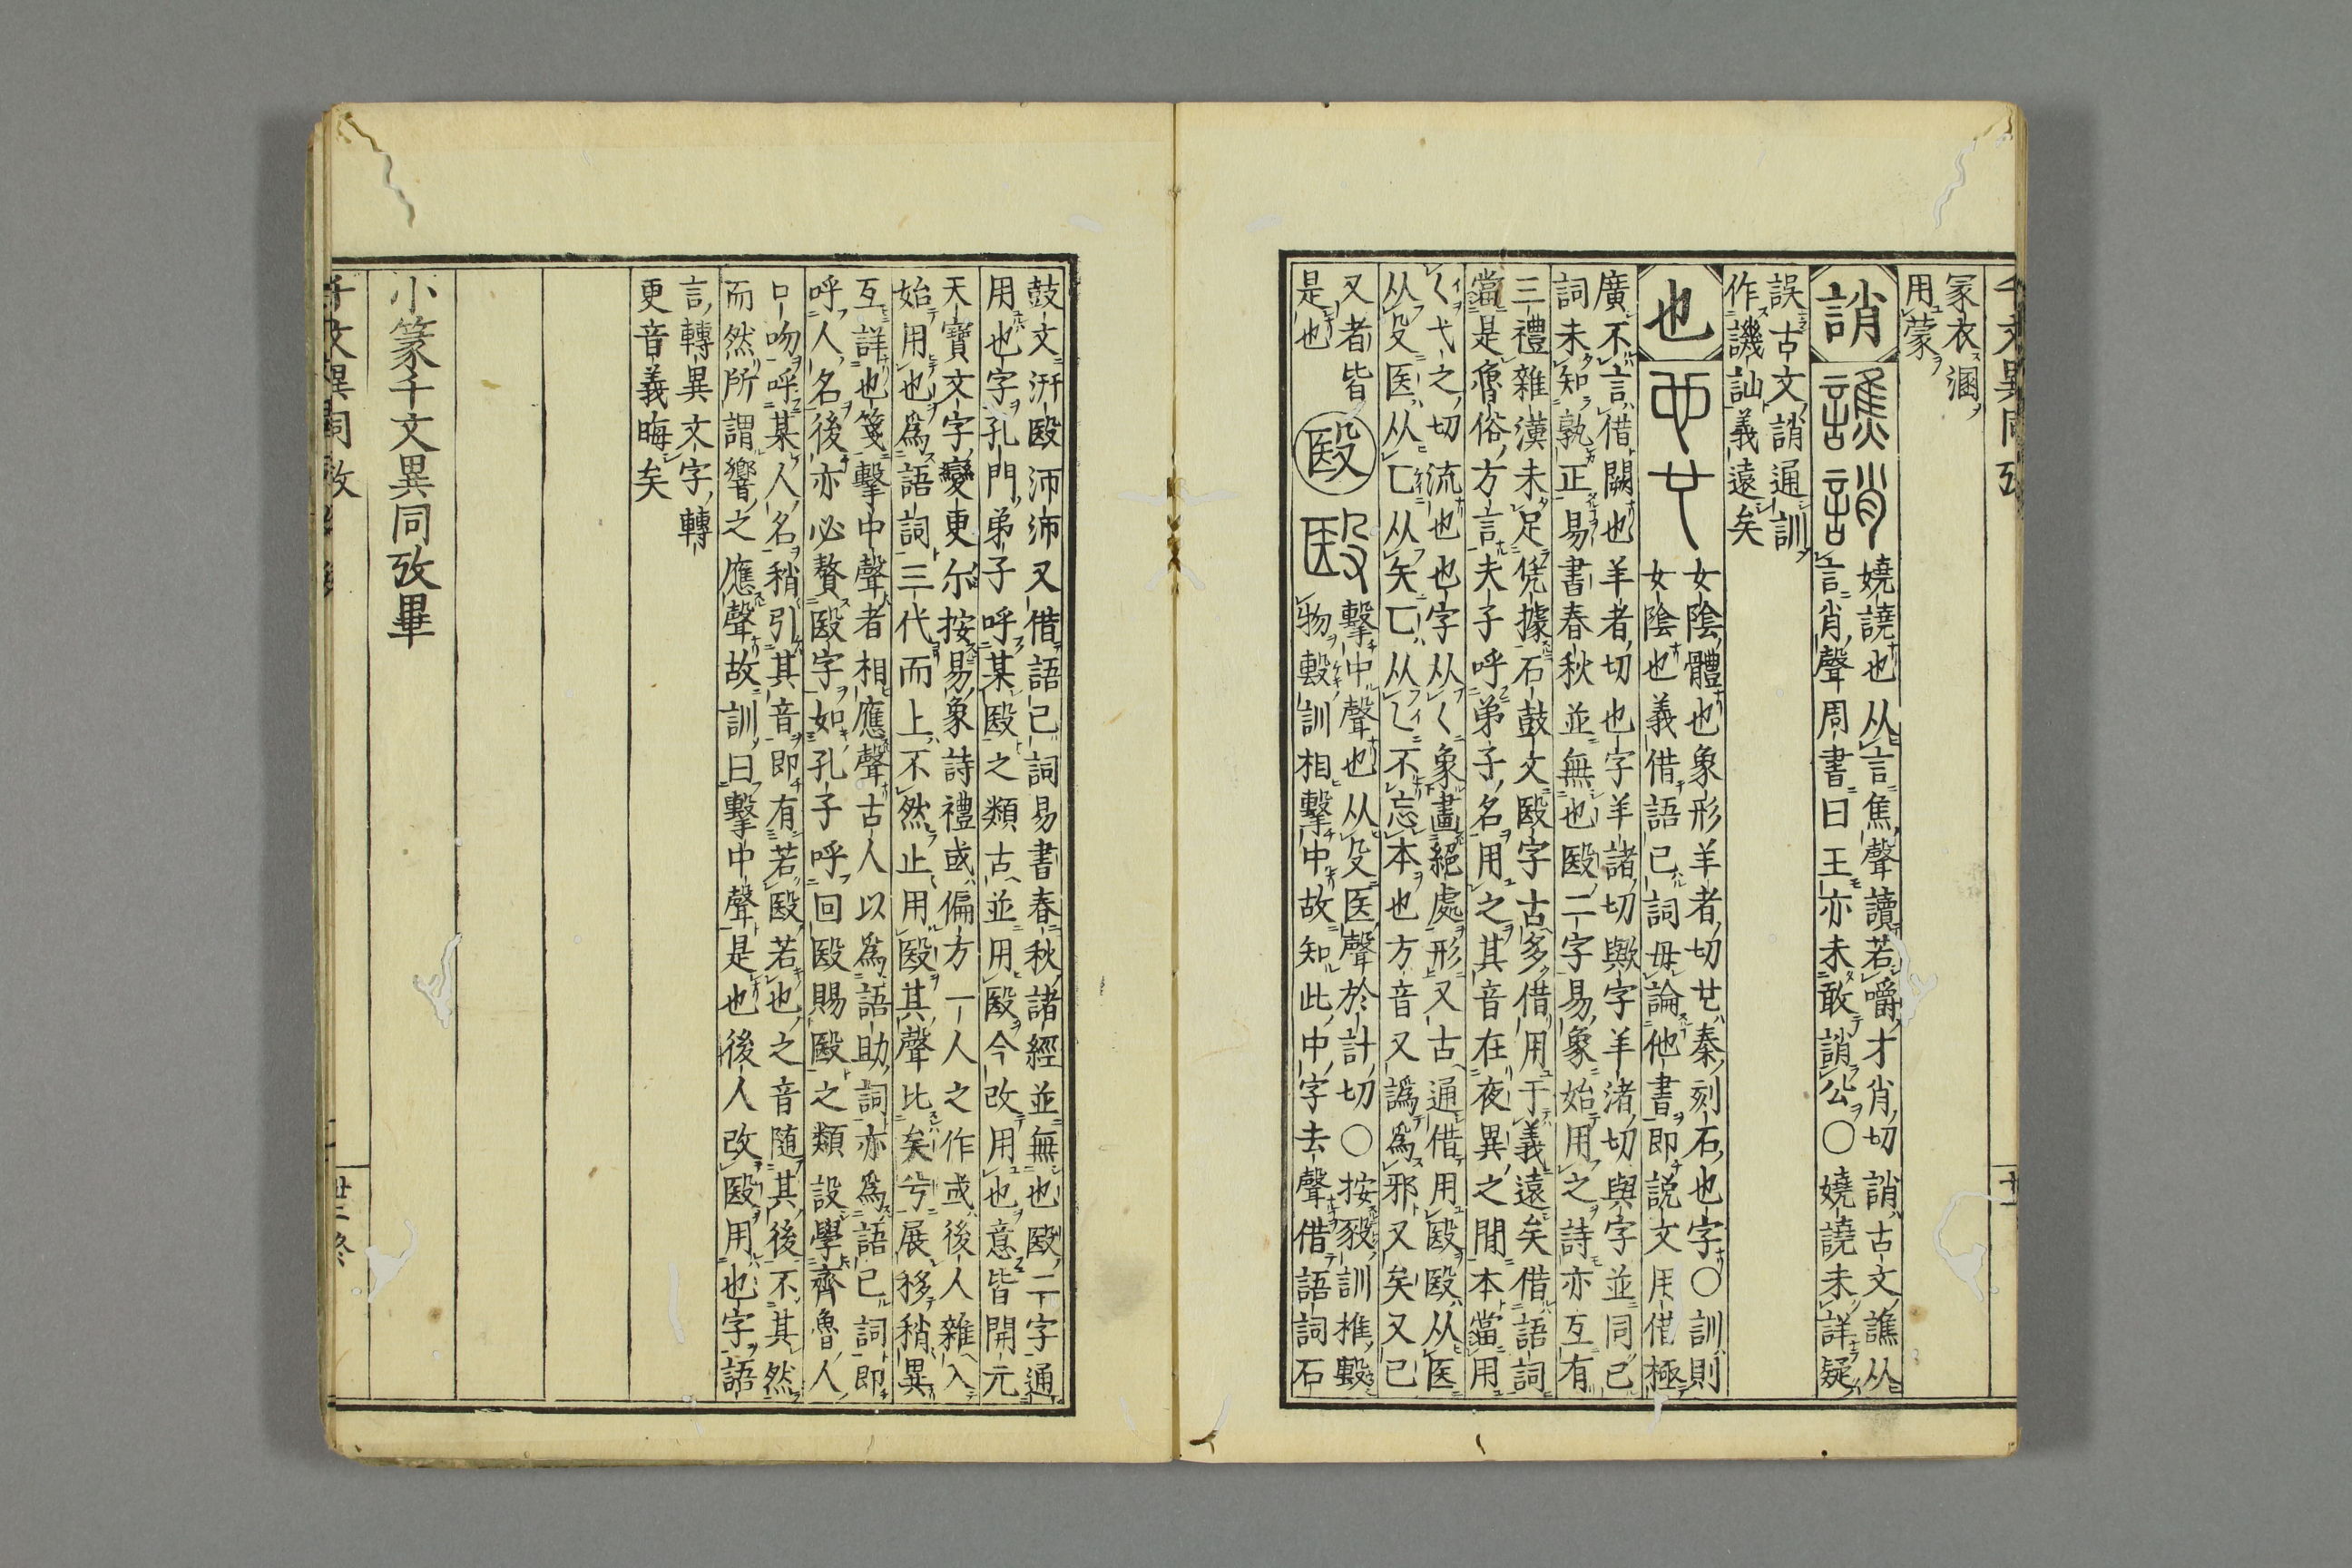 冡衣溷
用蒙
誚
嬈譊也从言焦聲讀若嚼才肖切誚古文譙从
言肖聲周書曰王亦未敢誚公○嬈譊未詳疑
誤古文誚通訓
作譏訕義遠矣
也
女陰體也象形羊者切廿秦刻石也字○訓則
女陰也義借語已詞毋論他書即説文用借極
廣不言借闕也羊者切也字羊諸切歟字羊渚切與字並同已
詞未知孰正易書春秋並無也殹二字易象始用之詩亦互有
三禮雜漢未足凭據石鼓文殹字古多借用于義遠矣借語詞
當是魯俗方言夫子呼弟子名用之其音在夜異之間本當用
乁弋之切流也也字从乁象畫絕處形又古通借用殹殹从医
从殳医从匸从矢匸从乚不忘本也方音又譌為邪又矣又已
又者皆
是也
殹
擊中聲也从殳医聲於計切○按毅訓椎毄
物毄訓相擊中故知此中字去聲借語詞石
鼓文汧殹沔沔又借語已詞易書春秋諸經並無也殹二字通
用也字孔門弟子呼某殹之類古並用殹今改用也意皆開元
天寶文字變更尓按易象詩禮或偏方一人之作或後人雜入
始用也為語詞三代而上不然止用殹其聲比矣兮展移稍異
互詳也箋擊中聲者相應聲古人以為語助詞亦為語已詞即
呼人名後亦必贅殹字如孔子呼回殹賜殹之類設學齊魯人
口吻呼某人名稍引其音即有若殹若也之音随其後不其然
而然所謂響之應聲故訓曰擊中聲是也後人改殹用也字語
言轉異文字轉
更音義晦矣
小篆千文異同攷畢